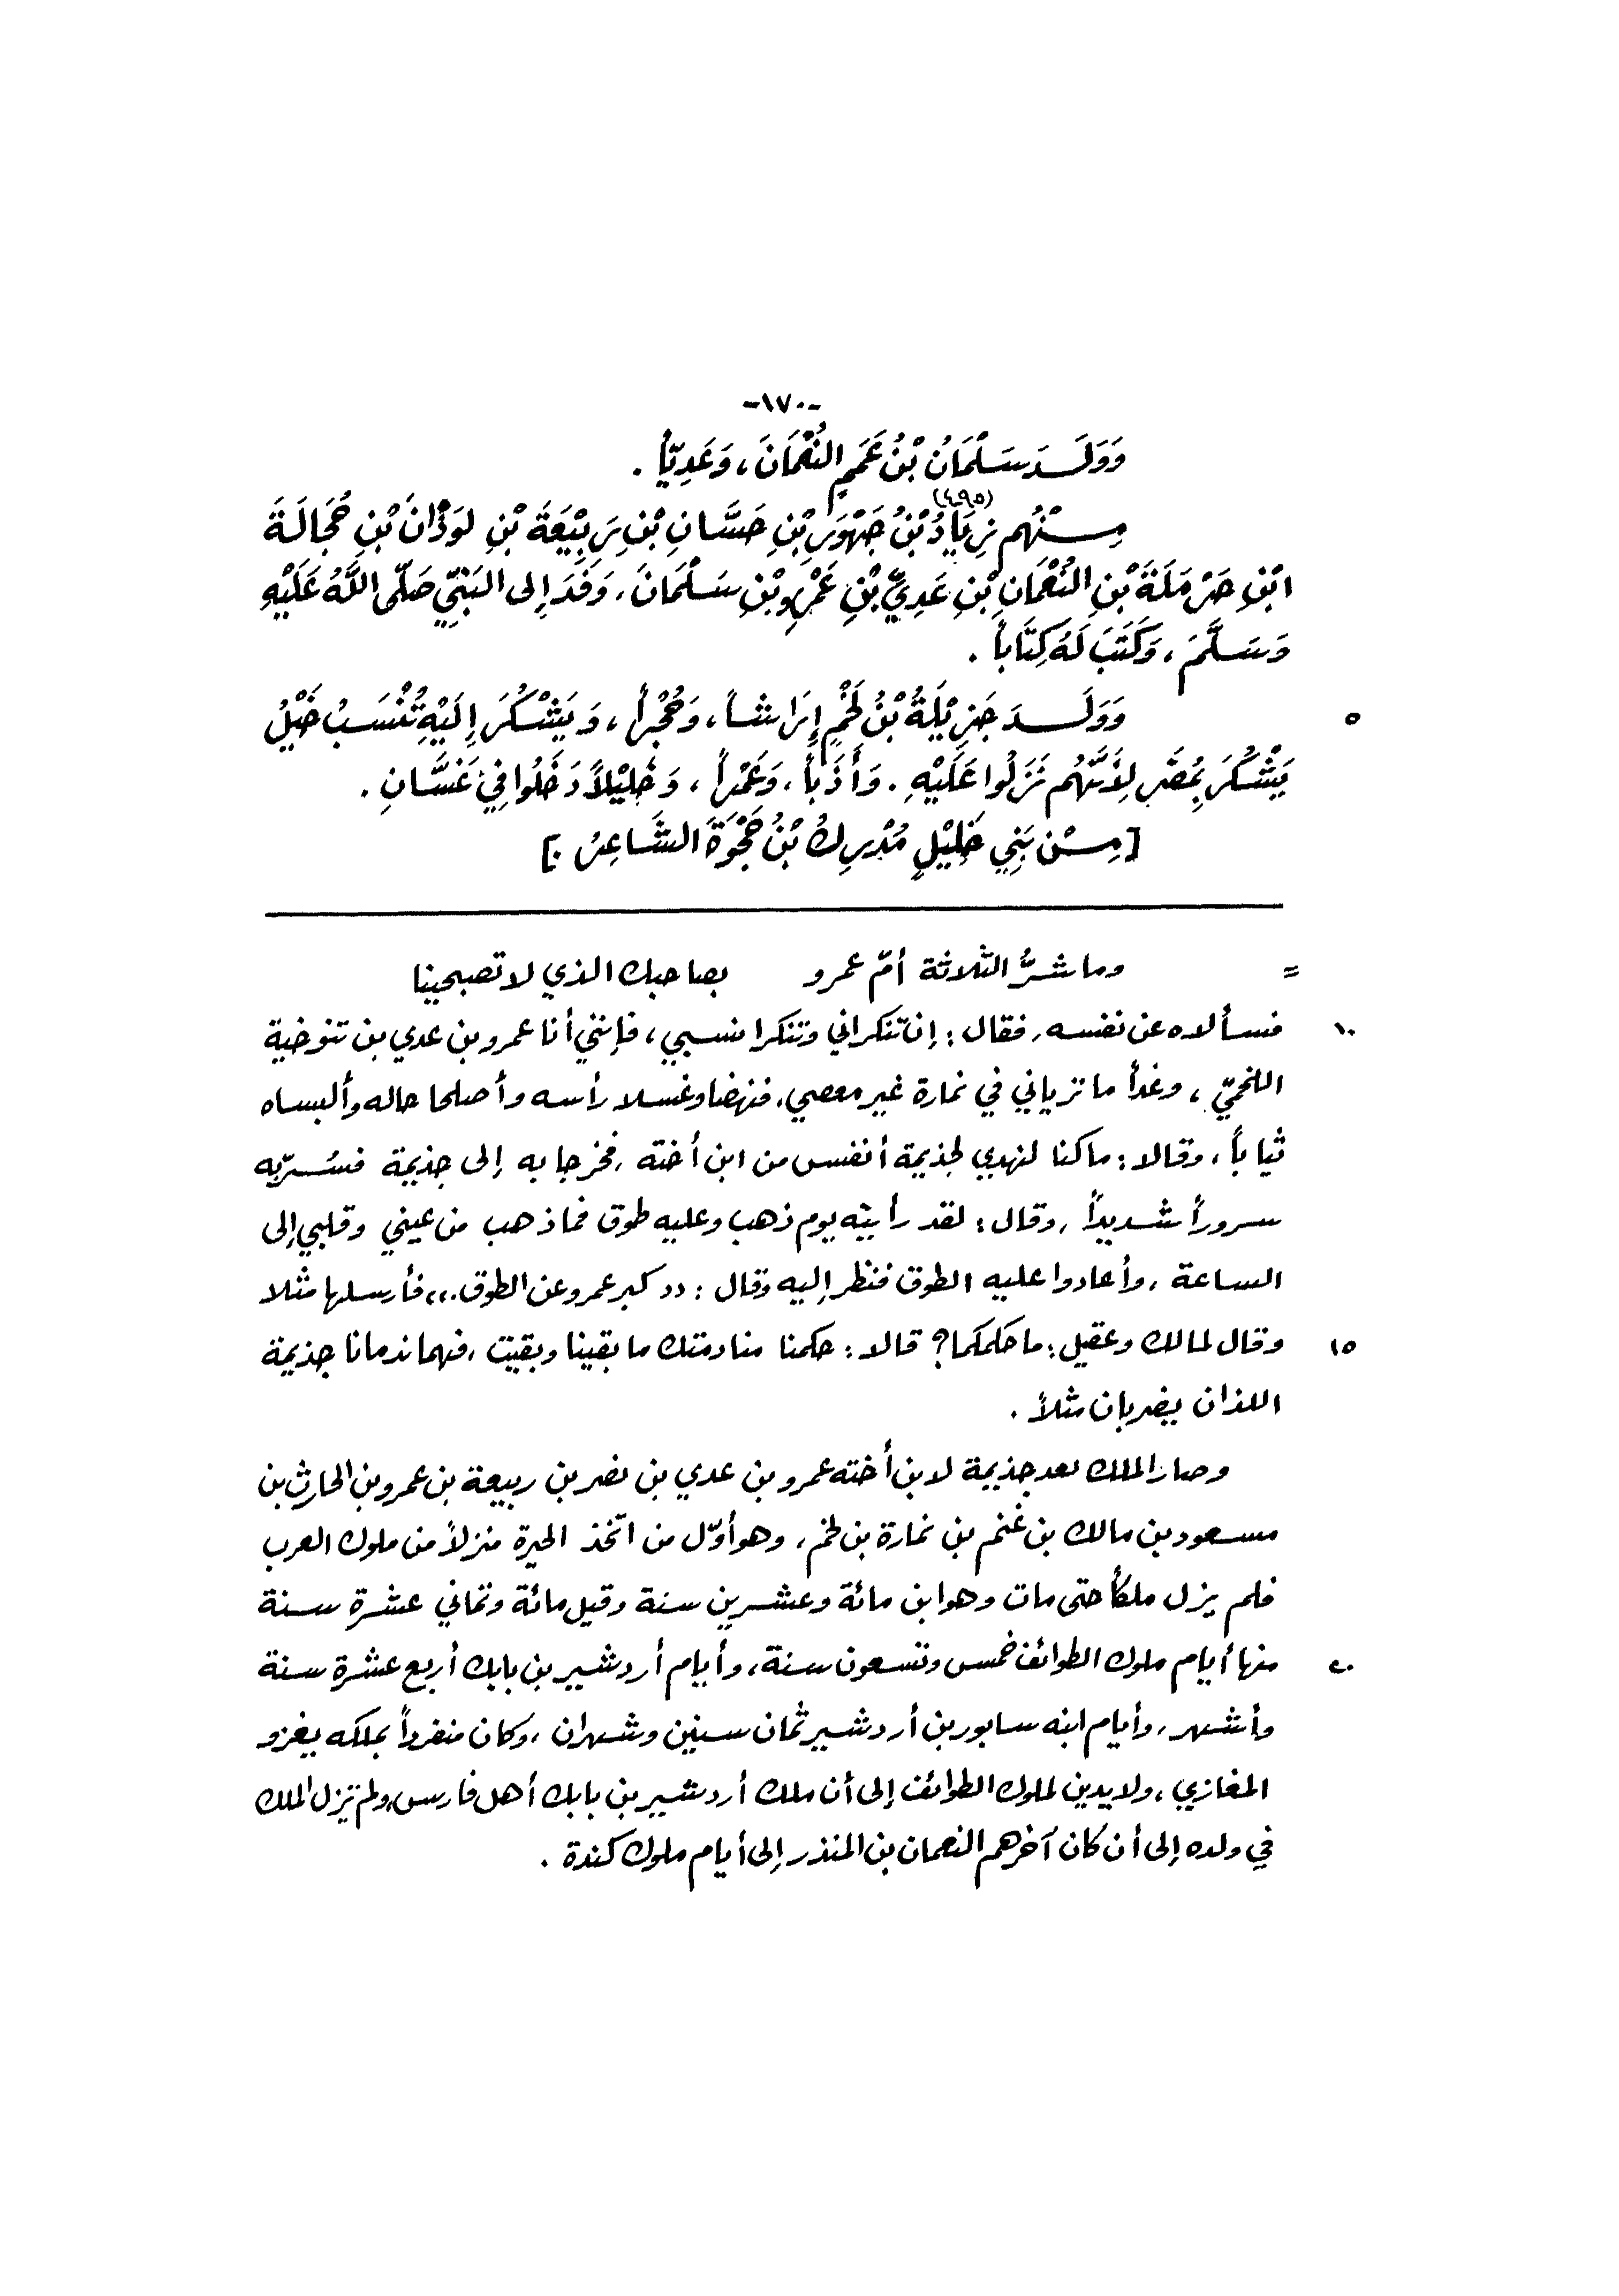 -١٧٠-
وَوَلَدَ سَلْمَانُ بْنُ عَمَمٍ النُّعْمَانَ، وَعَدِيّاً.
(٤٩٥)
مِنْهُم زِيَادُ بْنُ جَهْوَرِ بْنِ حَسَّانِ بْنِ رَبِيْعَةَ بْنِ لَوْذَانَ بْنِ حُجَالَةَ
ابْنِ حَرْمَلَةَ بْنِ النُّعْمَانِ بْنِ عَدِيِّ بْنِ عَمْرِو بْنِ سَلْمَانَ، وَفَدَ إِلى النَّبِيِّ صَلَّى اللَّهُ عَلَيْهِ
وَسَلَّمَ، وَكَتَبَ لَهُ كِتَاباً.
٥ وَوَلَدَ جَزِيْلَةُ بْنُ لَخْمٍ إِرَاشاً، وَحُجْراً، وَيَشْكُرَ إِلَيْهِ تُنْسَبُ جَبَلُ
يَشْكُرَ بِمُصْرَ لِأَنَّهُم نَزَلُوا عَلَيْهِ. وَأَذَباً، وَعَمْراً، وَخَلِيْلاً دَخَلُوا فِي غَسَّانِ.
[مِنْ بَنِي خَلِيْلٍ مُدْرِكُ بْنُ حَجْوَةَ الشَّاعِرُ.]
= وما شرُّ الثلاثة أمّ عمرو بصاحبك الذي لا تصبحينا
١٠ فسألاه عن نفسه، فقال: إن تنكراني وتنكرا نسبي، فإنني أنا عمرو بن عدي بن تنوخية
اللخميّ، وغداً ما ترياني في نمارة غير معصي، فنهضا وغسلا رأسه وأصلحا حاله وألبساه
ثياباً، وقالا: ما كنا لنهدي لجذيمة أنفس من ابن أخته، فخرجا به إلى جذيمة فسُرّ به
سروراً شديداً، وقال: لقد رأيته يوم ذهب وعليه طوق فما ذهب من عيني وقلبي إلى
الساعة، وأعادوا عليه الطوق فنظر إليه وقال: «كبر عمرو عن الطوق.» فأرسلها مثلا
١٥ وقال لمالك وعقيل: ما حكمكما؟ قالا: حكمنا منادمتك ما بقينا وبقيت، فهما ندمانا جذيمة
اللذان يضربان مثلاً.
وصار الملك بعد جذيمة لابن أخته عمرو بن عدي بن نصر بن ربيعة بن عمرو بن الحارث بن
مسعود بن مالك بن غنم بن نمارة بن لخم، وهو أوّل من اتّخذ الحيرة منزلاً من ملوك العرب
فلم يزل ملكاً حتى مات وهو ابن مائة وعشرين سنة وقيل مائة وثماني عشرة سنة
٢٠ منها أيام ملوك الطوائف خمس وتسعون سنة، وأيام أردشير بن بابك أربع عشرة سنة
وأشهر، وأيام ابنه سابور بن أردشير ثمان سنين وشهران، وكان منفرداً بملكه يغزو
المغازي، ولا يدين لملوك الطوائف إلى أن ملك أردشير بن بابك أهل فارس، ولم تزل الملك
في ولده إلى أن كان آخرهم النعمان بن المنذر إلى أيام ملوك كندة.